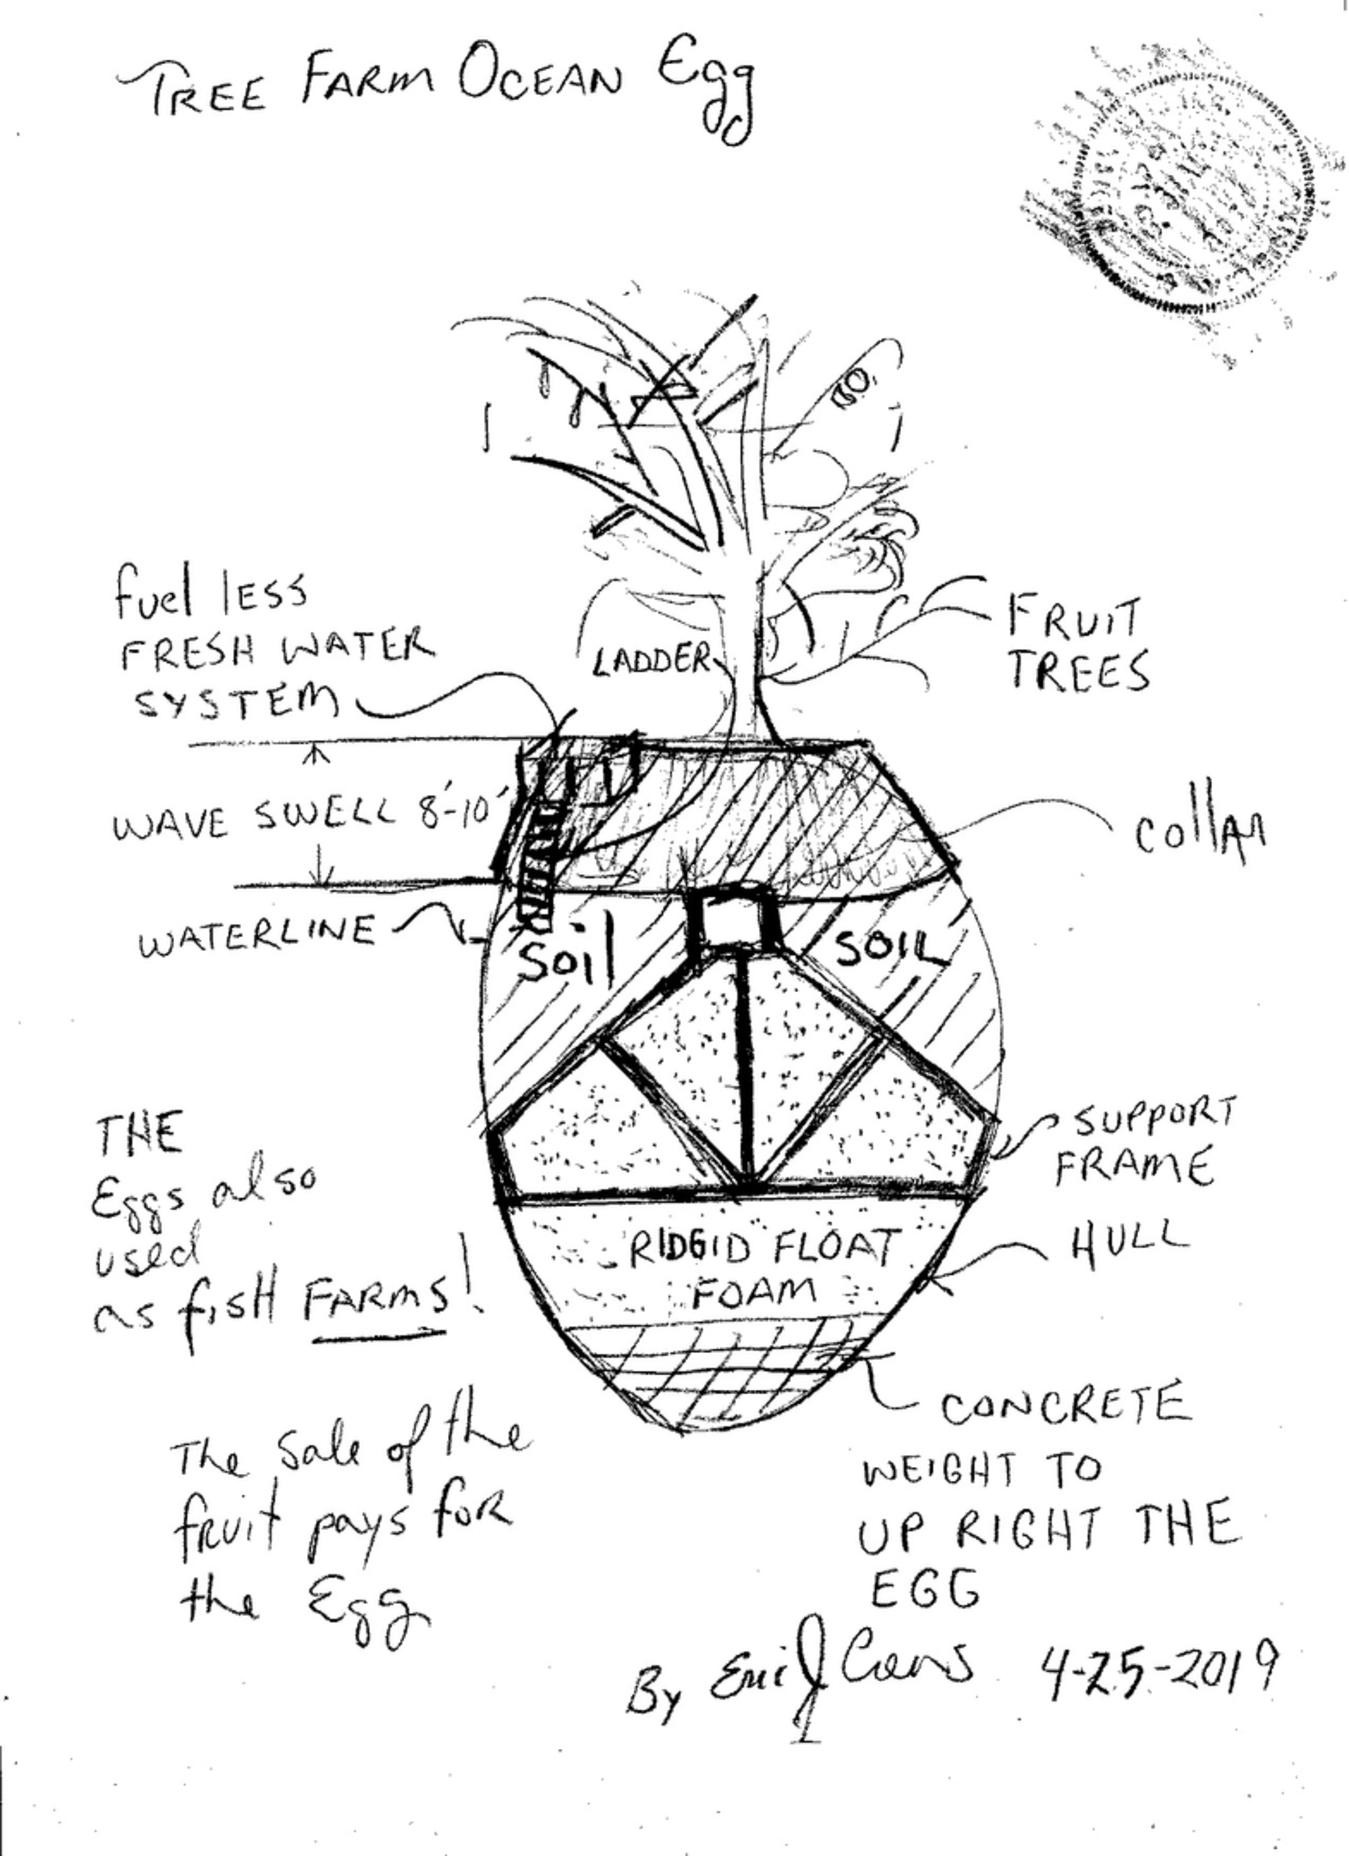 TREE FARM OCEAN Egg
fuel less
FRESH WATER
SYSTEM
LADDER
FRUIT
TREES
WAVE SWELL 8'-10'
collar
WATERLINE
Soil
SOIL
THE
Eggs also
used
as fisH FARMS!
SUPPORT
FRAME
HULL
RIDGID FLOAT
FOAM
The sale of the
fruit pays for
the Egg
CONCRETE
WEIGHT TO
UP RIGHT THE
EGG
By Eric J
4-25-2019